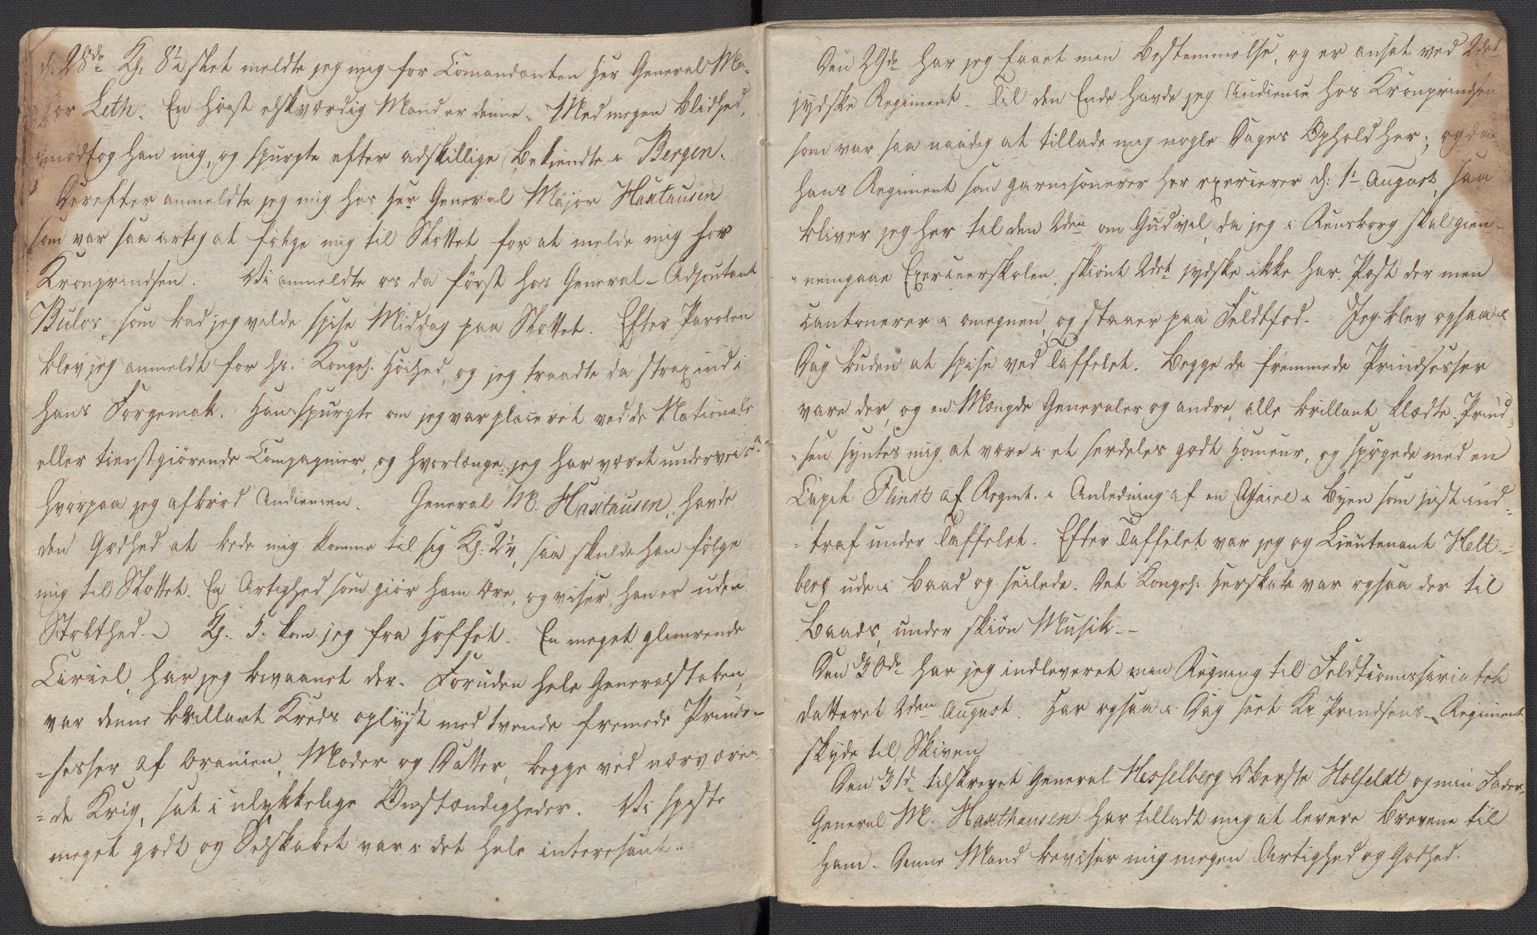 d: 28de Kl. 8½ slet meldte jeg mig for Comandanten Her General Ma-
jor Leth. En høist elskværdig Mand er denne. Med megen Blidhed,
modtog han mig, og spurgte efter adskillige Bekiendte i Bergen.
Derefter anmeldte jeg mig hos Her General Major Haxtausen
som var saa artig at følge mig til Slottet for at melde mig for
Kronprindsen. Vi anmeldte os da først hos General-Adjoutant
Bulov, som bad jeg vilde spise Middag paa Slottet. Efter Parolen
blev jeg anmeldt for hs. Kongel. Høihed, og jeg traadte da strax ind i
hans Forgemak. Han spurgte om jeg var placeret ved de Nationale
eller tienstgiørende Compagnier, og hvorlænge jeg har været underveis?
hvorpaa jeg afbrød Audiencen. General M. Haxtausen, havde
den Godhed at bede mig komme til sig Kl: 2¼, saa skulde han følge
mig til Slottet. En Artighed som giør ham Ære, og viser han er uden
Stolthed. Kl. 5. kom jeg fra Hoffet. En meget glimrende
Cirkel, har jeg bivaanet der. Foruden hele Generalstaben,
var denne brillant Kreds oplyst med tvende fremede Prinds-
=sesser af Oranien, Moder og Datter, begge ved nærværen-
=de Krig, sat i ulykkelige Omstændigheder. Vi spiste
meget godt og Selskabet var i det hele interesant.
Den 29de har jeg faaet min Bestemmelse, og er ansat ved 2det
jydske Regiment. Til den Ende havde jeg Audience hos Kronprindsen
som var saa naadig at tillade mig nogle Dages Ophold her; og da
hans Regiment som garnisonerer her exercerer d: 1te August, saa
bliver jeg her til den 2den om Gud vil, da jeg i Rensborg skal gien-
=nemgaae Exerceerskolen, skiønt 2det jydske ikke har Post der men
cantonerer i omegnen, og staaer paa Feldtfod. Jeg blev ogsaa i
Dag buden at spise ved Taffelet. Begge de fremmede Prindsesser
vare der, og en Mængde Generaler og andre, alle brillant klædte. Prind-
=sen syntes mig at være i et serdeles godt Humeur, og spøgede med en
Capit. Flindt af Regmt. i Anledning af en i Byen som just ind-
=traf under Taffelet. Efter Taffelet var jeg og Lieutenant Helt-
berg ude i Baad og seilede. Det Kongel. Herskab var ogsaa der til
Baads, under skiøn Musik.-
Den 30de har jeg indleveret min Regning til Feldtcomissariatet
datteret 2den August. Har ogsaa i Dag seet Kr. Prindsens Regiment
skyde til Skiven
Den 31d. tilskrevet General Hesselberg Oberste Holfeldt og min Fader.
General M. Haxthausen har tilladt mig at levere Brevene til
ham. Denne Mand beviser mig megen Artighed og Godhed.